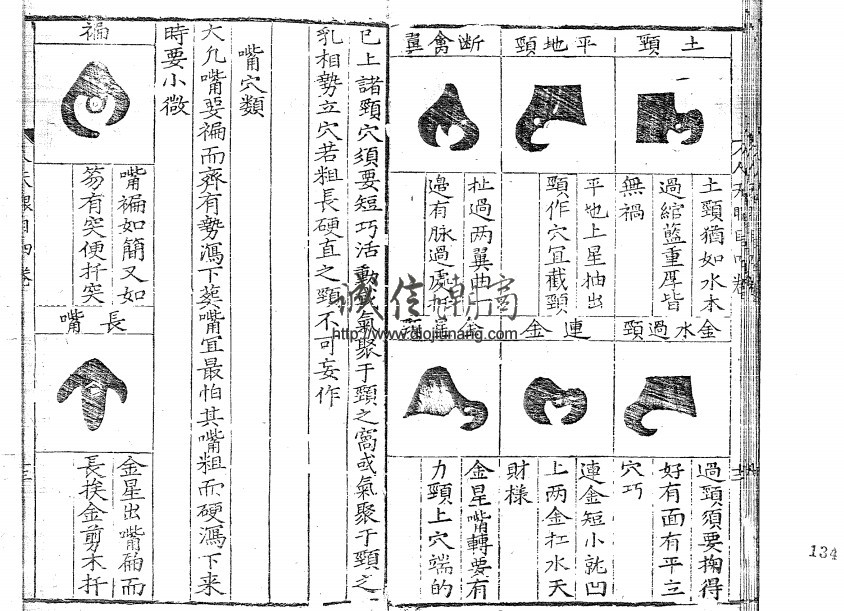 土頸
土頸猶如水木
過綰藍重厚皆
無禍
平地頸
平地上星抽出
頸作穴宜截頸
断禽翼
扯過两翼曲
邉有脉過處
金水過頸
過頸須要掬得
好有面有平立
穴巧
連金
連金短小就凹
上两金扛水天
財樣
金星嘴轉要有
力頸上穴端的
已上諸頸穴須要短巧活動或氣聚于頸之窩或氣聚于頸之
乳相勢立穴若粗長硬直之頸不可妄作
嘴穴類
大凢嘴要褊而齊有勢瀉下葬嘴宜最怕其嘴粗而硬瀉下来
時要小微
褊
嘴褊如簡又如
笏有突便扦突
長嘴
金星出嘴褊而
長挨金剪木扦
134
誠信潮商
http://www.diojiunang.com